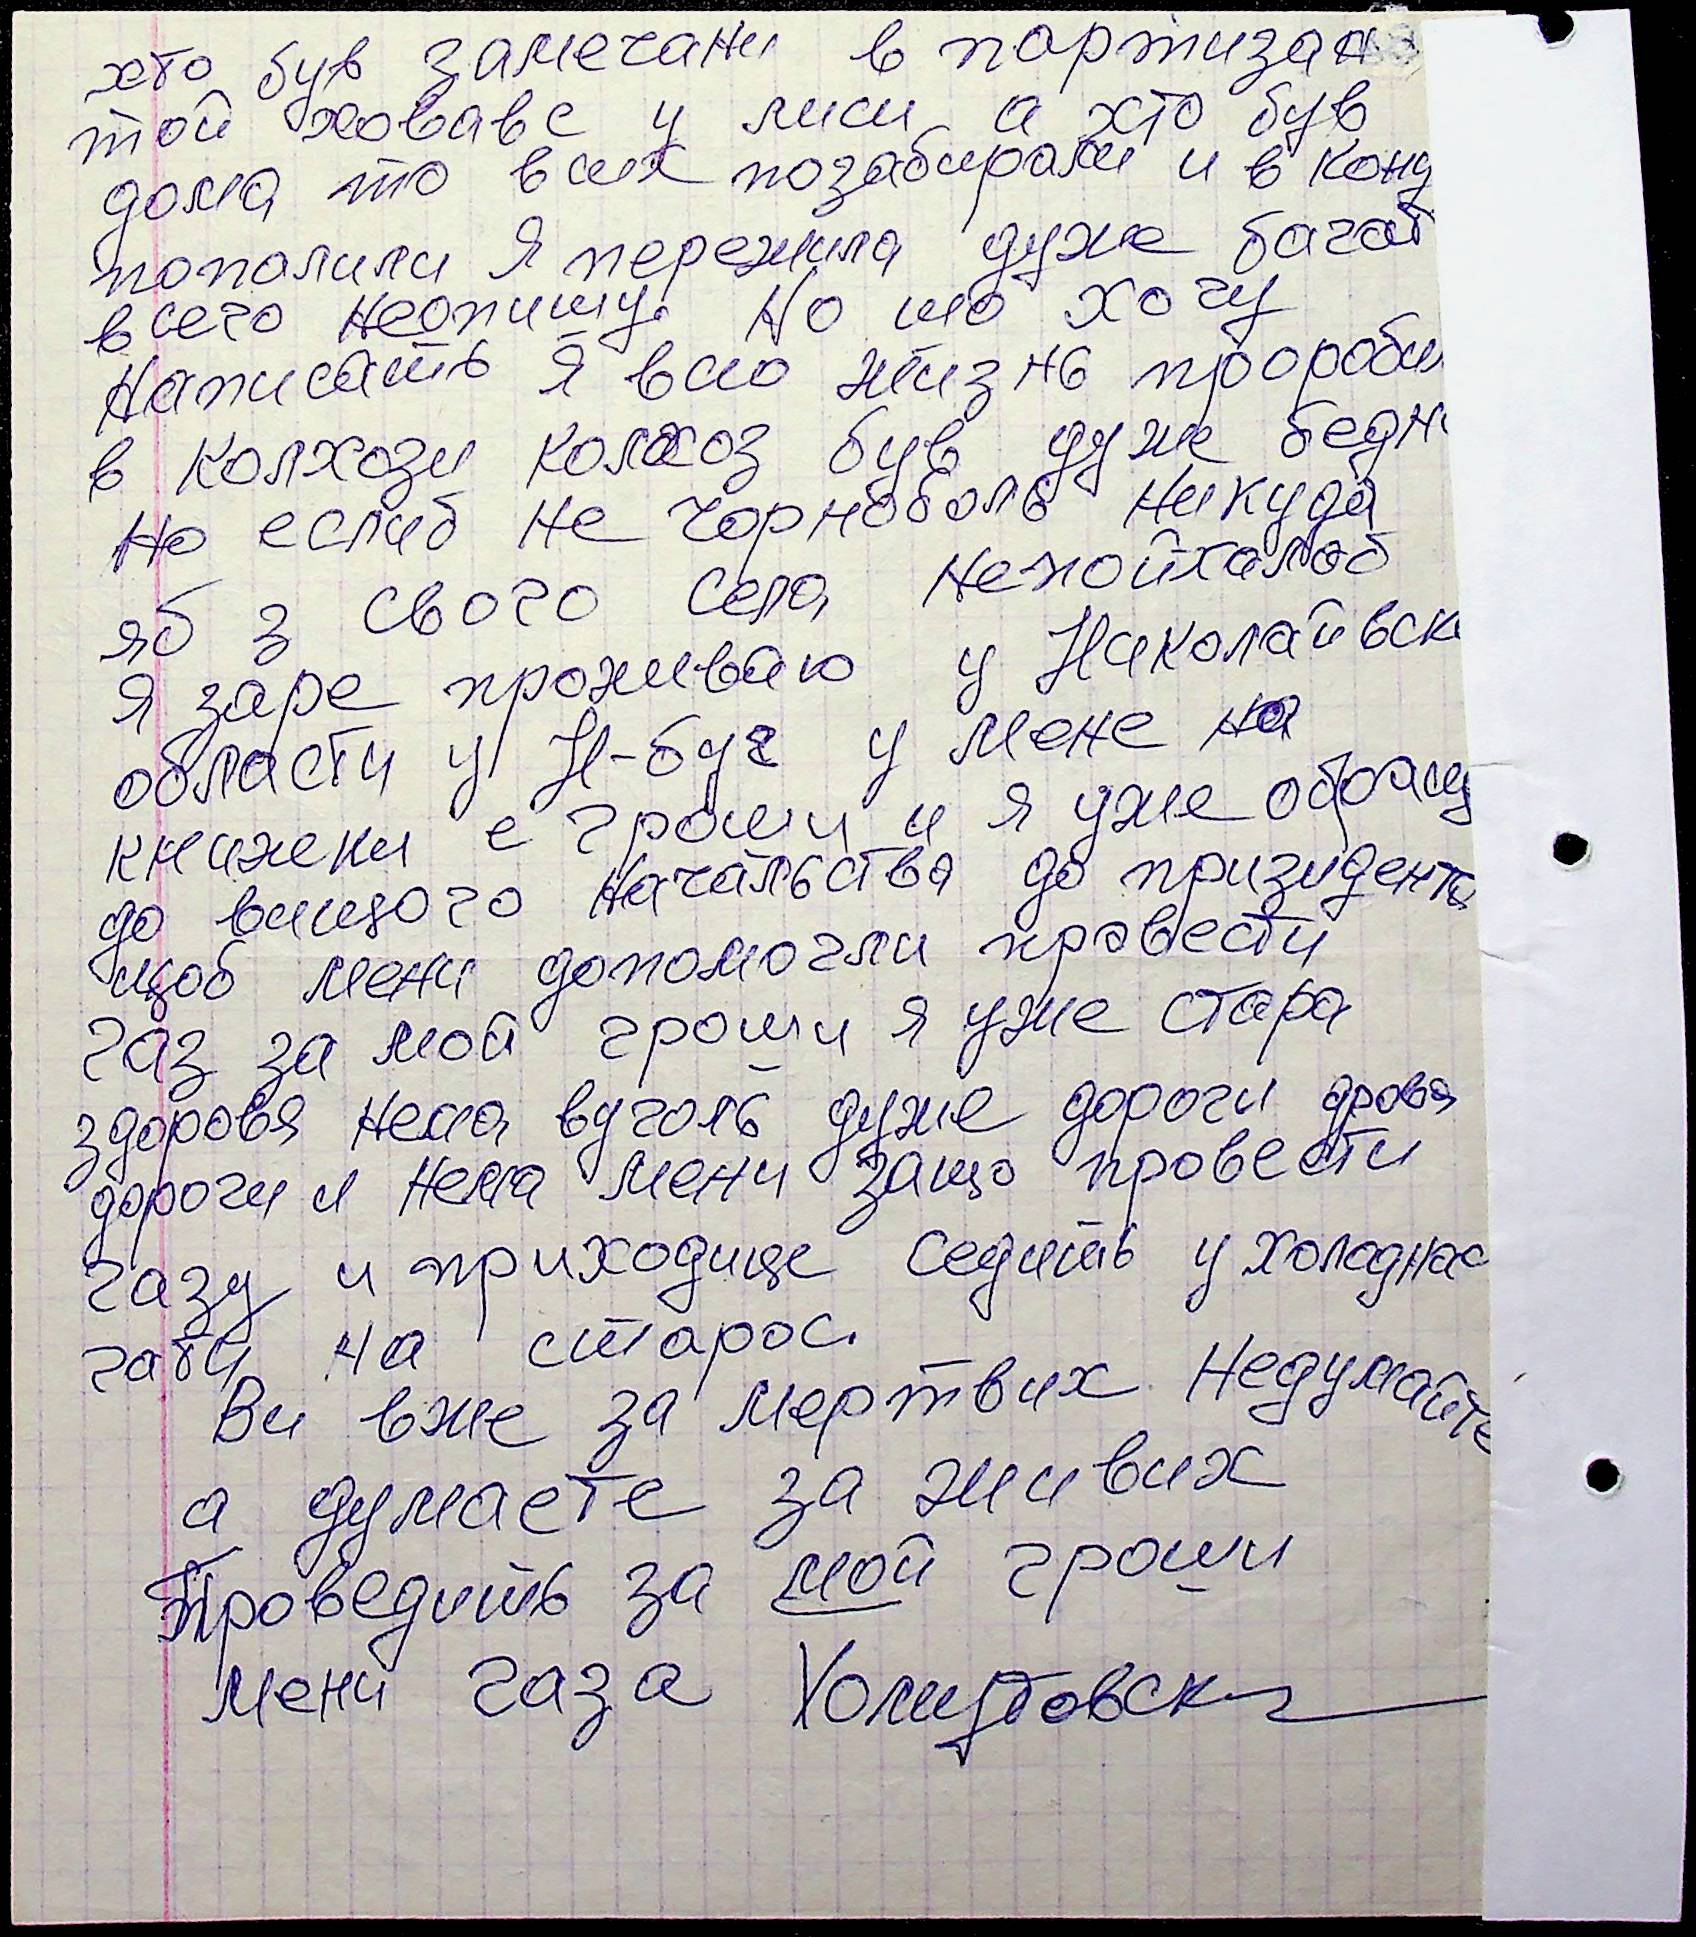 хто був замечани в партизан
той ховавс у лиси а хто був
дома то всих позабирали и в кону
попалили Я пережила дуже багат
всего неопишу. Но шо хочу
написать Я всю жизнь проробил
в колхози колхоз був дуже бедни
Но еслиб не Чорнобаль никуда
яб з свого села непойхалаб
Я заре проживаю у Николаивск
области у Н-буг у мене на
книжеки е гроши и я уже обращ
до вищого начальства до призидента
щоб мени допомогли провести
газ за мои гроши я уже стара
здоровя нема вуголь дуже дороги дрова
дороги и нема мени защо провести
газу и приходице седить у холоднас
гати на старос.
Ви вже за мертвих недумайте
а думаете за живих
Проведить за мои гроши
мени газа Хомутовск